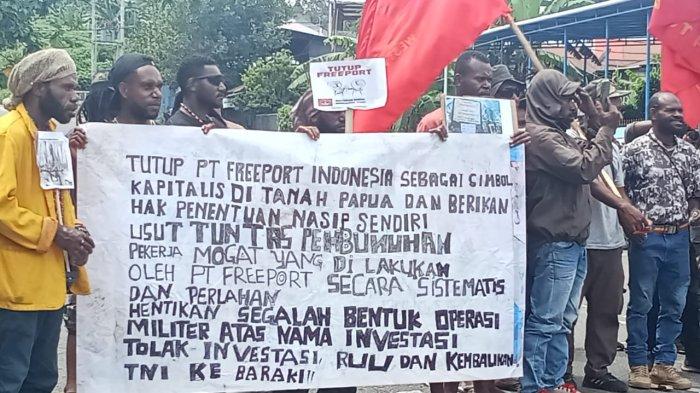 TUTUP
FREEPORT
TUTUP PT FREEPORT INDONESIA SEBAGAI SIMBOL
KAPITALIS DI TANAH PAPUA DAN BERIKAN
HAK PENENTUAN NASIP SENDIRI
USUT TUNTAS PEMBUNUHAN
PEKERJA MOGAT YANG DI LAKUKAN
OLEH PT FREEPORT SECARA SISTEMATIS
DAN PERLAHAN
HENTIKAN SEGALAH BENTUK OPERASI
MILITER ATAS NAMA INVESTASI
TOLAK INVESTASI, RUU DAN KEMBALIKAN
TNI KE BARAK!!